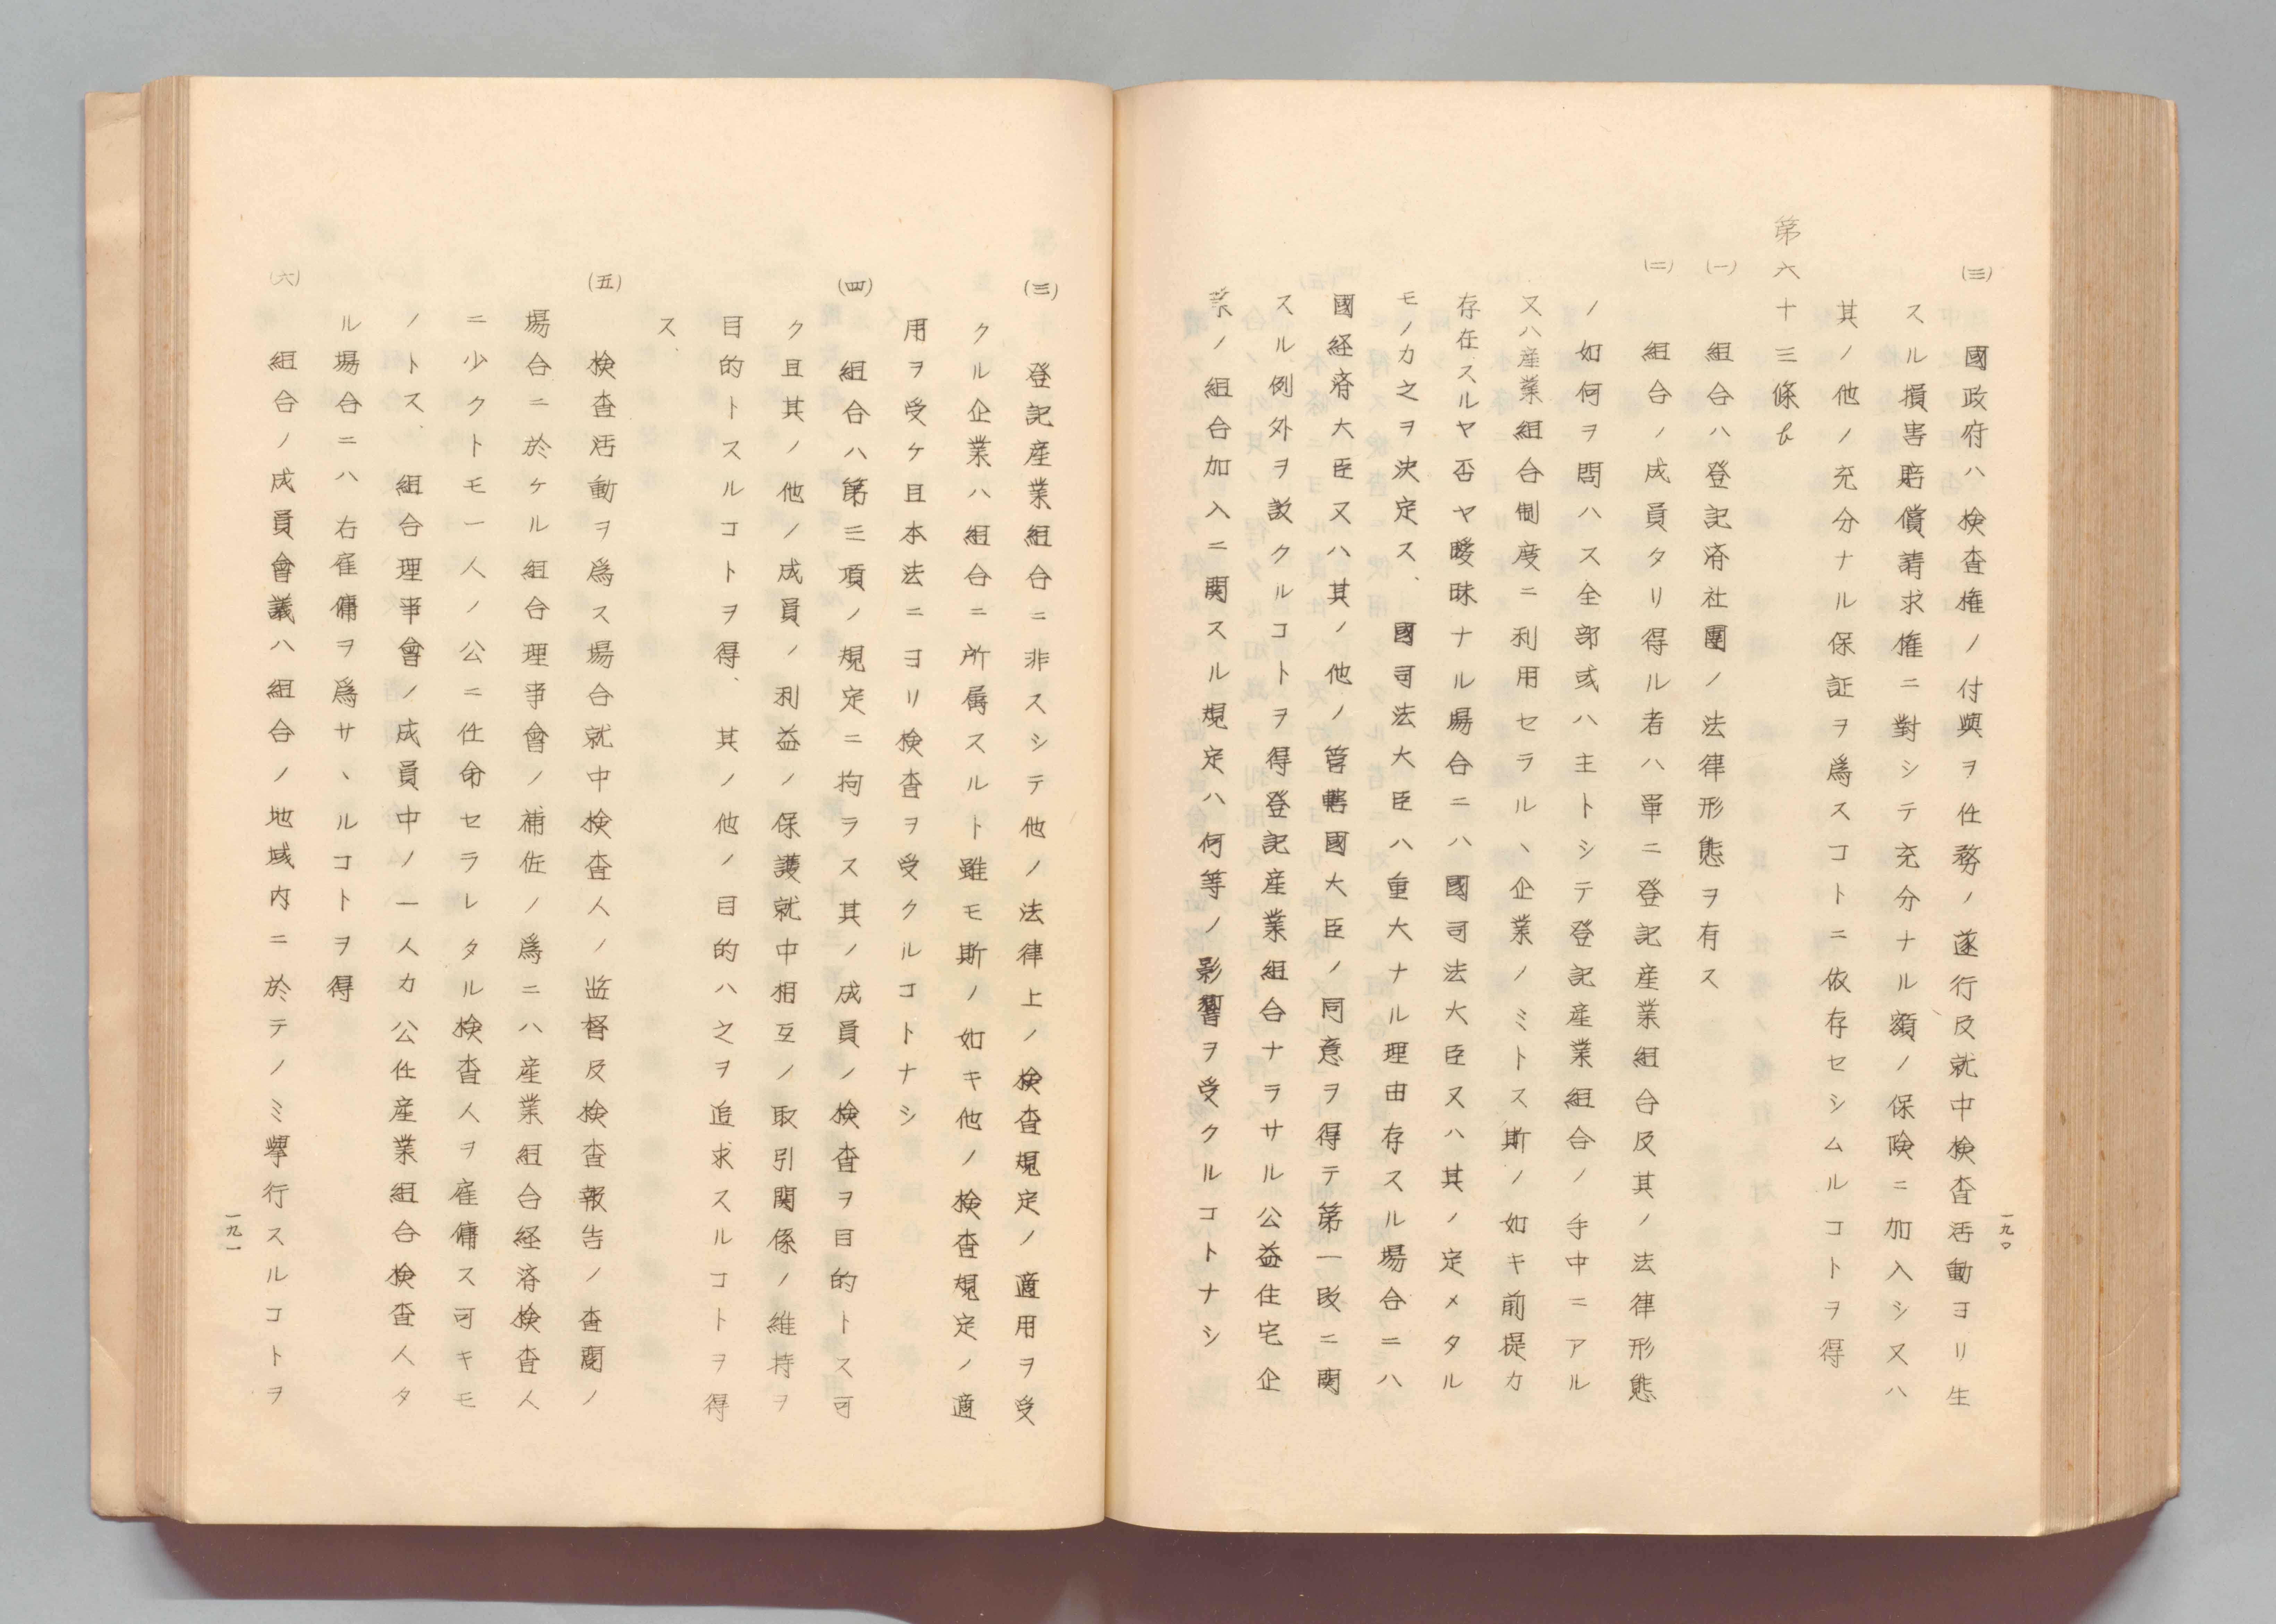 ㈢　國政府ハ検査権ノ付與ヲ任務ノ遂行及就中検査活動ヨリ生
スル損害賠償請求権ニ對シテ充分ナル額ノ保険ニ加入シ又ハ
其ノ他ノ充分ナル保証ヲ爲スコトニ依存セシムルコトヲ得
第六十三條b
㈠　組合ハ登記済社團ノ法律形態ヲ有ス
㈡　組合ノ成員タリ得ル者ハ單ニ登記産業組合及其ノ法律形態
ノ如何ヲ問ハス全部或ハ主トシテ登記産業組合ノ手中ニアル
又ハ産業組合制度ニ利用セラルヽ企業ノミトス斯ノ如キ前提カ
存在スルヤ否ヤ曖昧ナル場合ニハ國司法大臣又ハ其ノ定メタル
モノカ之ヲ決定ス、國司法大臣ハ重大ナル理由存スル場合ニハ
國経済大臣又ハ其ノ他ノ管轄國大臣ノ同意ヲ得テ第一段ニ関
スル例外ヲ設クルコトヲ得登記産業組合ナラサル公益住宅企
業ノ組合加入ニ関スル規定ハ何等ノ影響ヲ受クルコトナシ
一九〇
㈢　登記産業組合ニ非スシテ他ノ法律上ノ検査規定ノ適用ヲ受
クル企業ハ組合ニ所属スルト雖モ斯ノ如キ他ノ検査規定ノ適
用ヲ受ケ且本法ニヨリ検査ヲ受クルコトナシ
㈣　組合ハ第三項ノ規定ニ拘ラス其ノ成員ノ検査ヲ目的トス可
ク且其ノ他ノ成員ノ利益ノ保護就中相互ノ取引関係ノ維持ヲ
目的トスルコトヲ得、其ノ他ノ目的ハ之ヲ追求スルコトヲ得
ス、
㈤　検査活動ヲ爲ス場合就中検査人ノ監督及検査報告ノ査閲ノ
場合ニ於ケル組合理事會ノ補佐ノ爲ニハ産業組合経済検査人
ニ少クトモ一人ノ公ニ任命セラレタル検査人ヲ雇傭ス可キモ
ノトス、組合理事會ノ成員中ノ一人カ公任産業組合検査人タ
ル場合ニハ右雇傭ヲ爲サヽルコトヲ得
㈥　組合ノ成員會議ハ組合ノ地域内ニ於テノミ擧行スルコトヲ
一九一